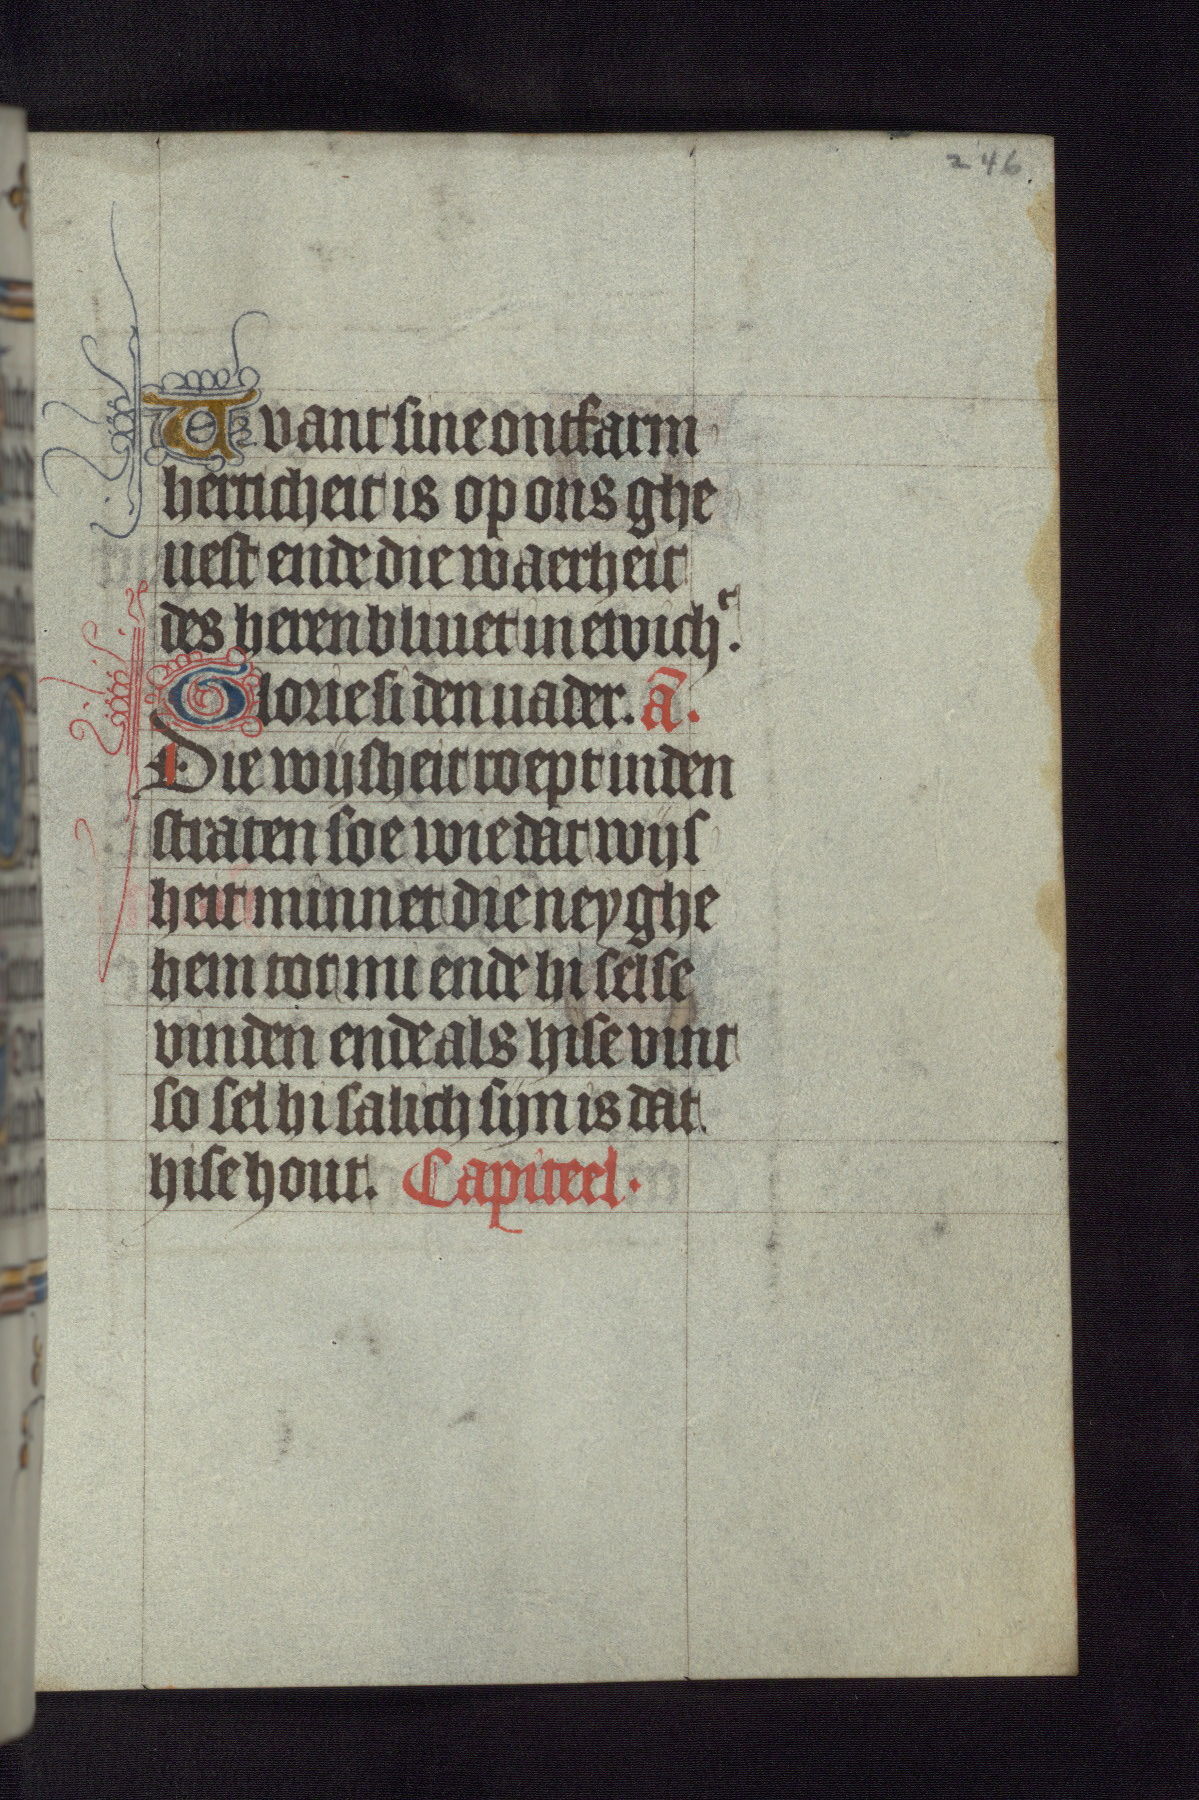 246
Vvant sine ontfarm
herticheit is op ons ghe
uest ende die waerheit
des heren bliuet in ewich᷑.
Glorie si den uader. ā.
Die wijsheit roept in den
straten soe wie dat wijs
heit minnet die neyghe
hem tot mi ende hi sel se
vinden ende als hise vint
so sel hi salich sijn is dat
hise hout. Capiteel.